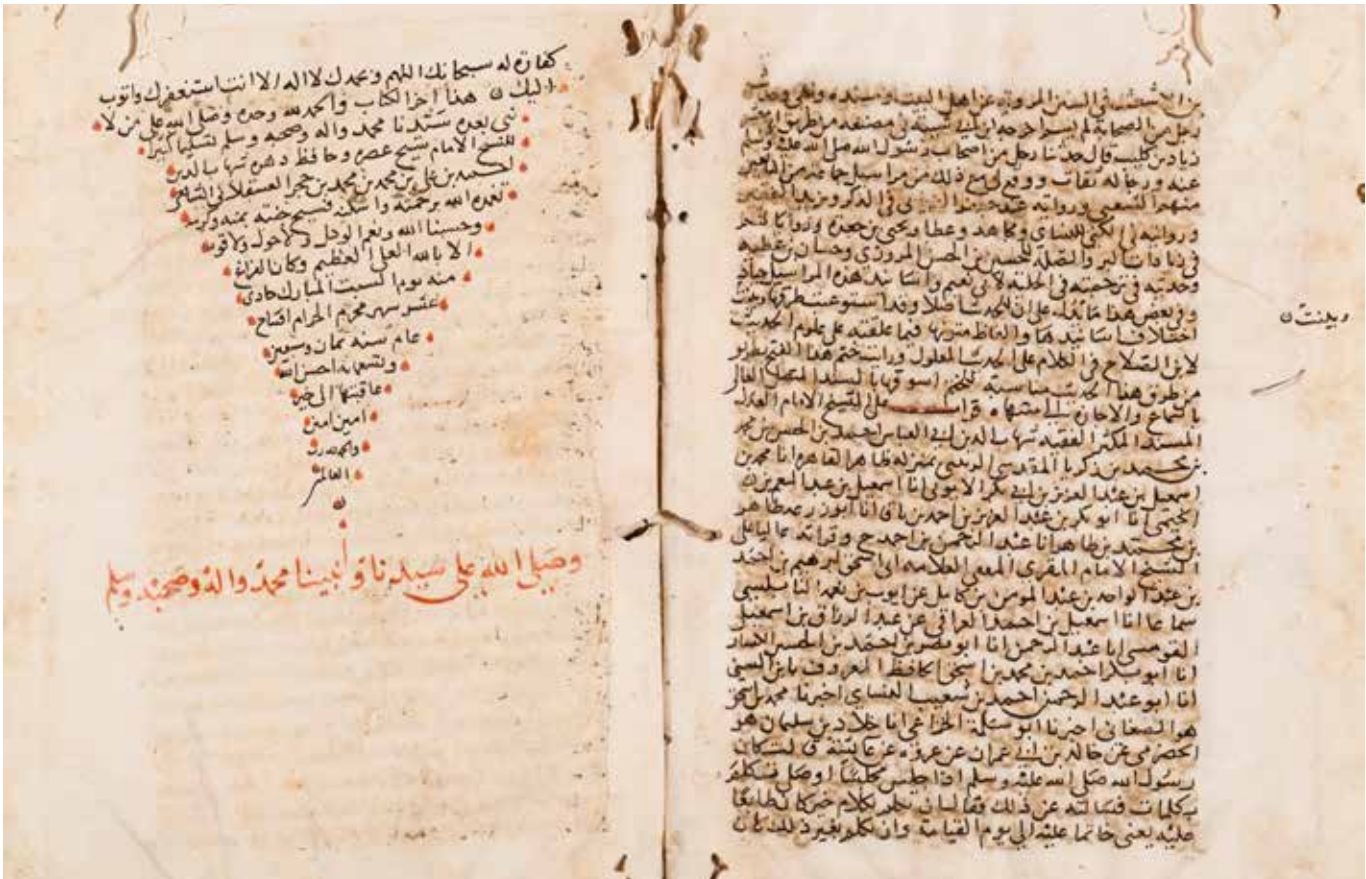 بن الاشعث في السنن المروية عن اهل البيت ومسنده وعلى وحديث
رجل من الصحابة لم يسم اخرجه ابن ابي شيبة في مصنفه من طريق ابي معشر
زياد بن كليب قال حدثنا رجل من اصحاب رسول الله صلى الله عليه وسلم
عنه ورجاله ثقات ووقع لي مع ذلك من مراسيل جماعة من التابعين
منهم الشعبي وروايته عند جعفر الفريابي في الذكر ويزيد الفقير
وروايته في الكنى للنساي ومجاهد وعطا ويحيى بن جعدة ورواياتهم
في زيادات البر والصلة للحسين بن الحسن المروزي وحسان بن عطية
وحديثه في ترجمته في الحلية لابي نعيم واسانيد هذه المراسيل جياد
وفي بعض هذا ما يدل على ان للحديث اصلا وقد استوعبت طرقها وبينت
اختلاف اسانيدها والفاظ متونها فيما علقته على علوم الحديث
لابن الصلاح في الكلام على الحديث المعلول ورايت ختم هذا الفتح بطريق
من طرق هذا الحديث مناسبة للختم اسوقها بالسند المتصل العالي
بالسماع والاجازة الى منتهاه قرات على الشيخ الامام العدل
المسند المكثر الفقيه شهاب الدين ابي العباس احمد بن الحسن بن محمد
بن محمد بن زكريا المقدسي الزينبي بمنزله ظاهر القاهرة انا محمد بن
اسمعيل بن عبد العزيز بن ابي بكر الايوبي انا اسمعيل بن عبد المنعم بن
الخيمي انا ابو بكر بن عبد العزيز بن احمد بن باقا انا ابو زرعة طاهر
بن محمد بن طاهر انا عبد الرحمن بن احمد ح وقراته عاليا على
الشيخ الامام المقري المفتي العلامة ابي اسحق ابرهيم بن احمد
بن عبد الواحد بن عبد المومن بن كامل عن ايوب بن نعمة النابلسي
سماعا انا اسمعيل بن احمد العراقي عن عبد الرزاق بن اسمعيل
القومسي انا عبد الرحمن انا ابو نصر احمد بن الحسين الكسار
انا ابو بكر احمد بن محمد بن اسحق الحافظ المعروف بابن السني
انا ابو عبد الرحمن احمد بن شعيب النساي اخبرنا محمد بن اسحق
هو الصغاني اخبرنا ابو سلمة الخزاعي انا خلاد بن سليمان هو
الحضرمي عن خالد بن ابي عمران عن عروة عن عايشة قالت كان
رسول الله صلى الله عليه وسلم اذا جلس مجلسا او صلى تكلم
بكلمات فسالته عن ذلك فقال ان تكلم بكلام خير كان طابعا
عليه يعني خاتما عليه الى يوم القيامة وان تكلم بغير ذلك كان
وبينت
كفارة له سبحانك اللهم وبحمدك لا اله الا انت استغفرك واتوب
اليك هذا اخر الكتاب والحمد لله وحده وصلى الله على من لا
نبي بعده سيدنا محمد واله وصحبه وسلم تسليما كثيرا
للشيخ الامام شيخ عصره وحافظ دهره شهاب الدين
احمد بن علي بن محمد بن محمد بن حجر العسقلاني الشافعي
تغمده الله برحمته واسكنه فسيح جنته بمنه وكرمه
وحسبنا الله ونعم الوكيل ولا حول ولا قوة
الا بالله العلي العظيم وكان الفراغ
منه يوم السبت المبارك حادي
عشر شهر محرم الحرام افتتاح
عام سنة ثمان وسبعين
وتسعماية احسن الله
عاقبتها الى خير
امين امين
والحمد لله رب
العالمين
ن
وصلى الله على سيدنا ونبينا محمد واله وصحبه وسلم